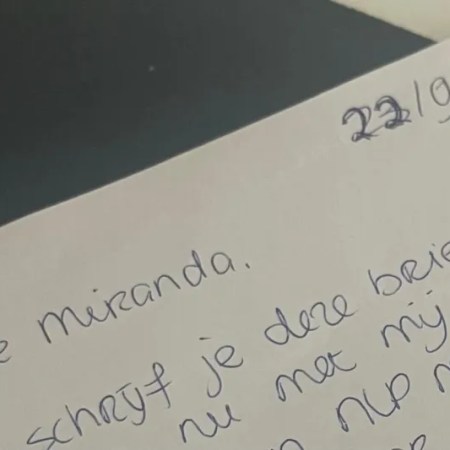 22/9
miranda.
schrijf je deze brie
nu met mij
NLP